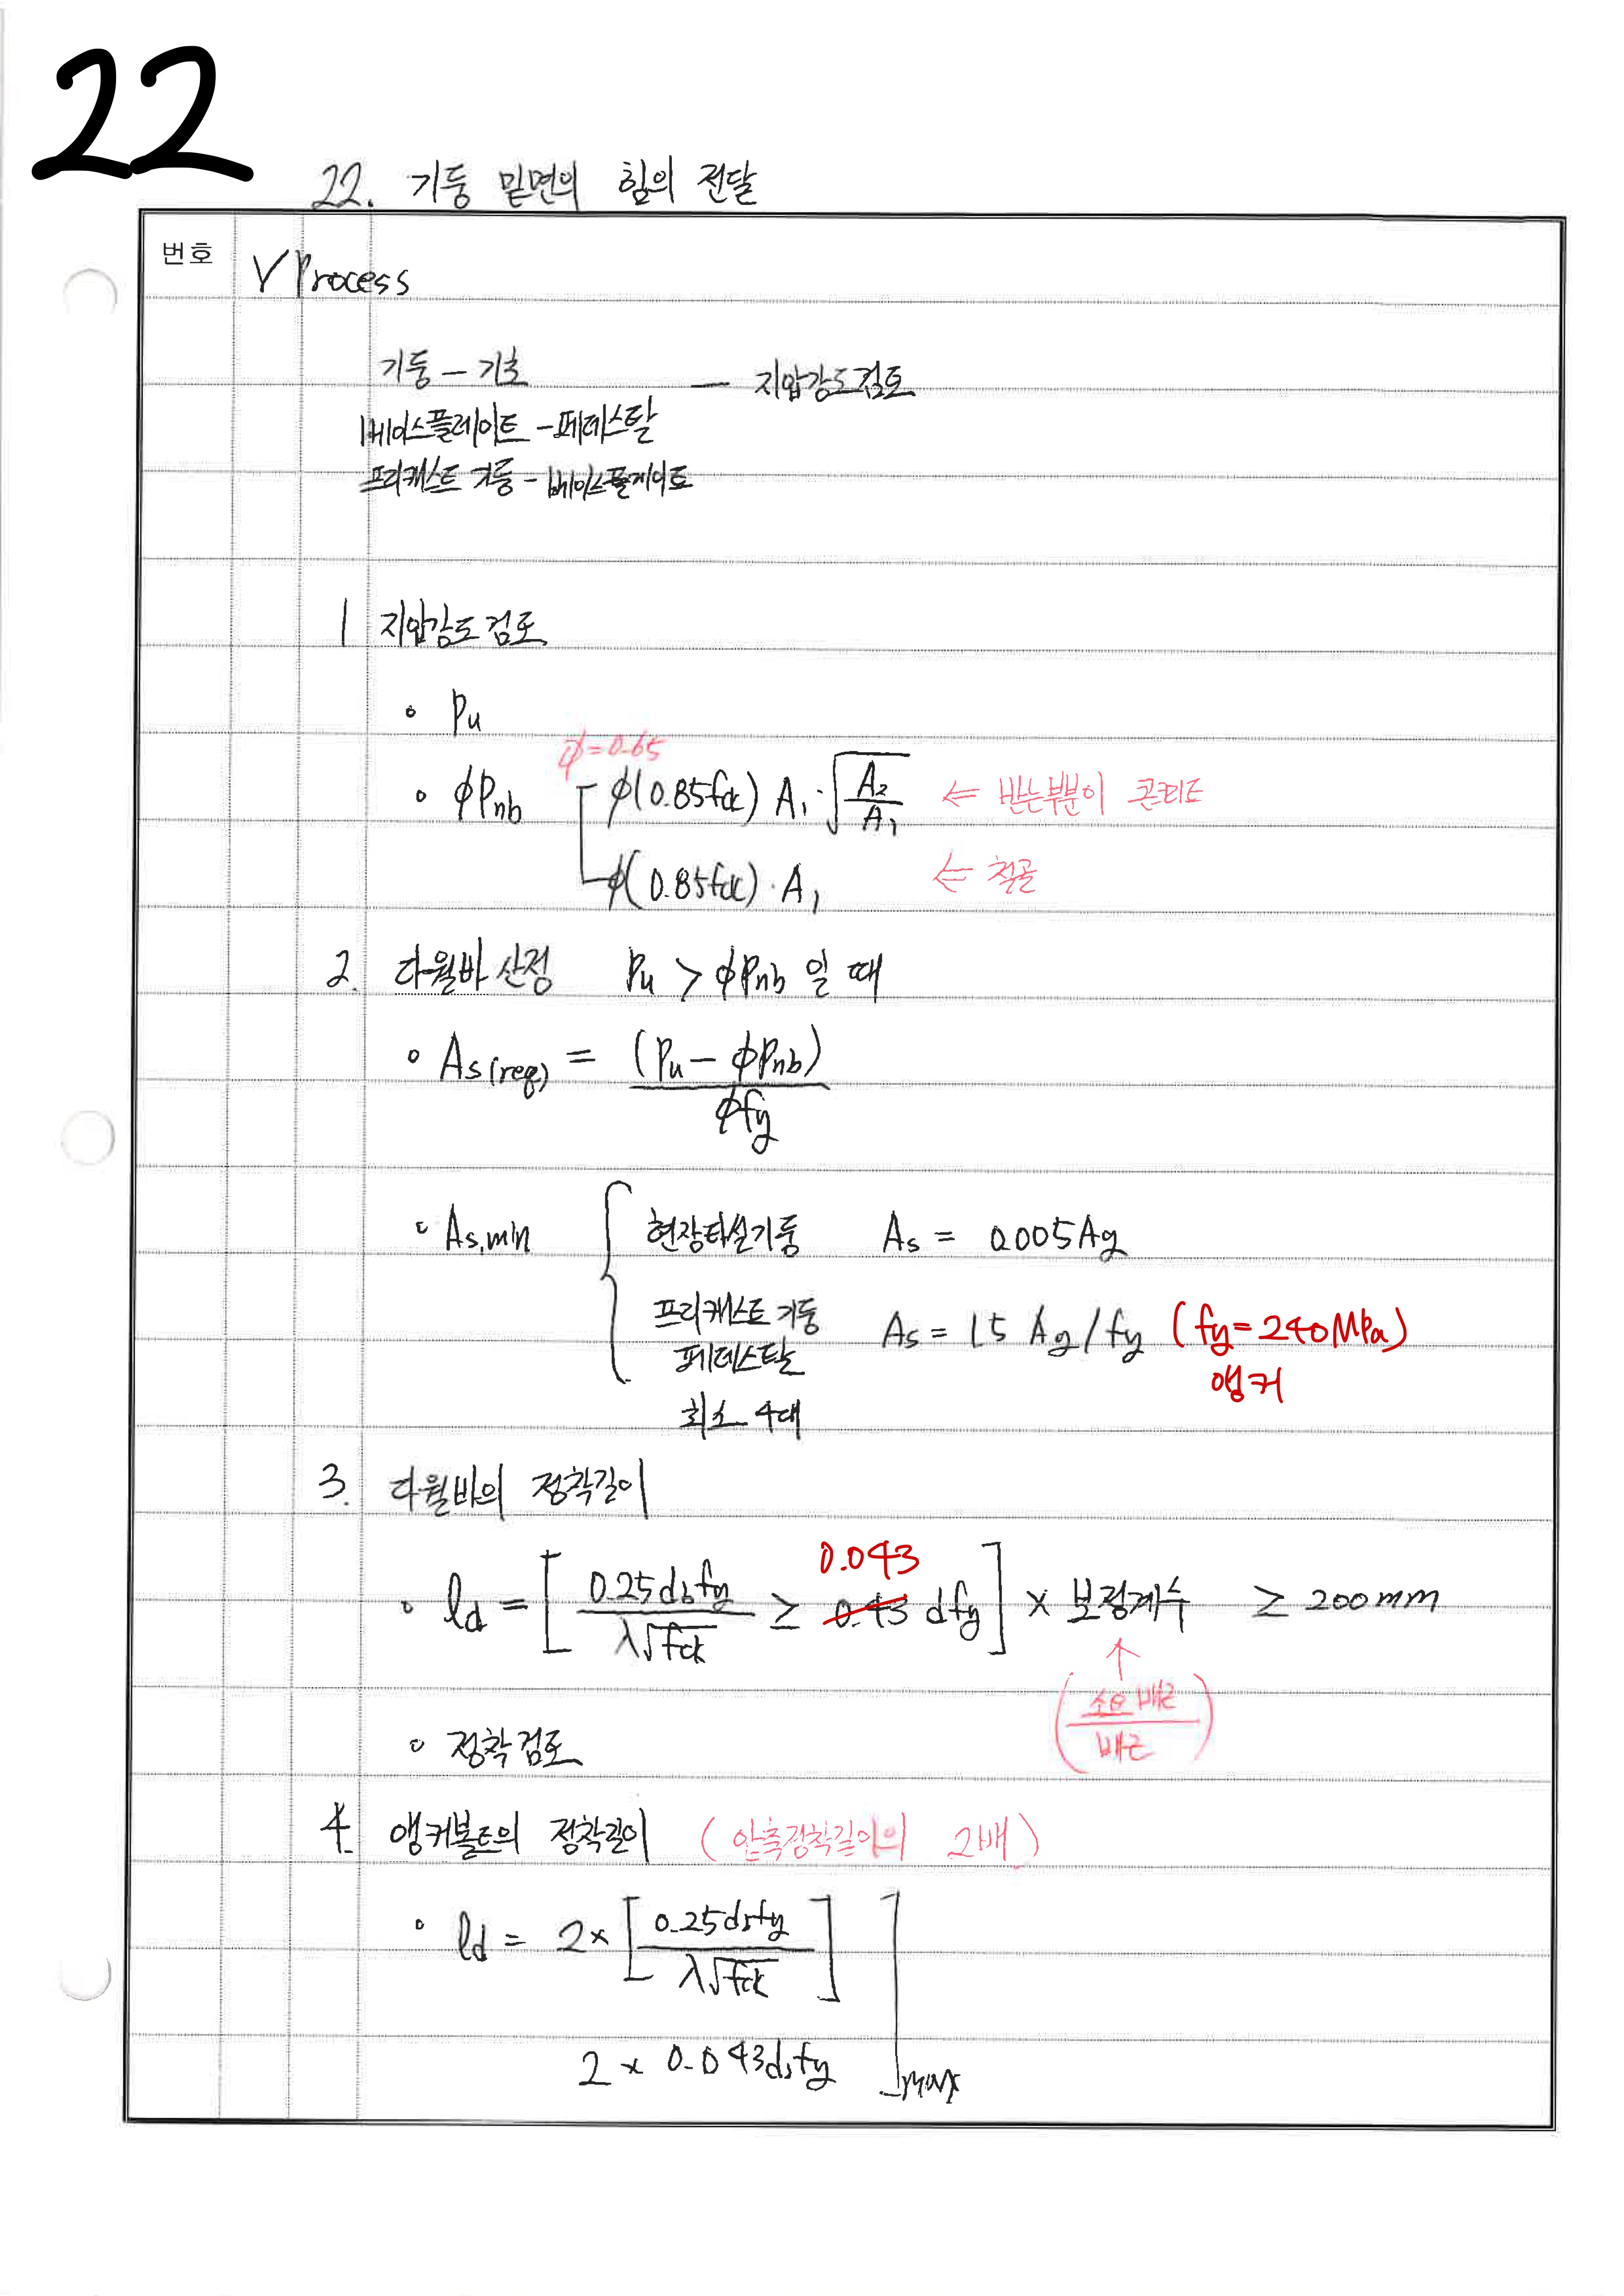 22
22. 기둥 밑면의 힘의 전달
번호
√ Process
기둥 - 기초 — 지압강도검토
베이스플레이트 - 페데스탈
프리캐스트 기둥 - 베이스플레이트
1 지압강도검토
∘ Pu
ϕ=0.65
∘ ϕPnb ϕ(0.85fck) A₁·√(A₂/A₁) ⇐ 받는부분이 콘크리트
ϕ(0.85fck)·A₁ ⇐ 철골
2. 다월바 산정 Pu > ϕPnb 일 때
∘ As(req) = (Pu - ϕPnb) / ϕfy
∘ As,min { 현장타설기둥 As = 0.005Ag
프리캐스트 기둥
페데스탈 As = 1.5 Ag/fy (fy=240MPa)
앵커
최소 4대
3. 다월바의 정착길이
0.043
∘ ld = [ 0.25dbfy / λ√fck ≥ 0.43 dfy ] × 보정계수 ≥ 200mm
↑
(소요배근 / 배근)
∘ 정착검토
4. 앵커볼트의 정착길이 (압축정착길이의 2배)
∘ ld = 2× [ 0.25dbfy / λ√fck ]
2 × 0.043dbfy ]max